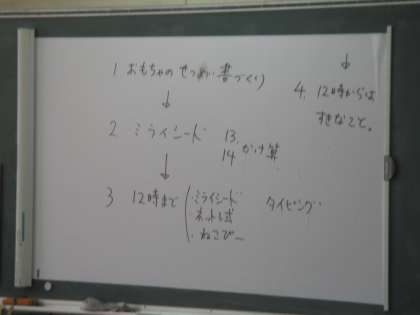 1 おもちゃのせつめい書づくり
↓
2. ミライシード 13. 14 かけ算
↓
3 12時まで
・ミライシード
・ネット模
・ねこぴー
タイピング
↓
4. 12時からは
すきなこと。